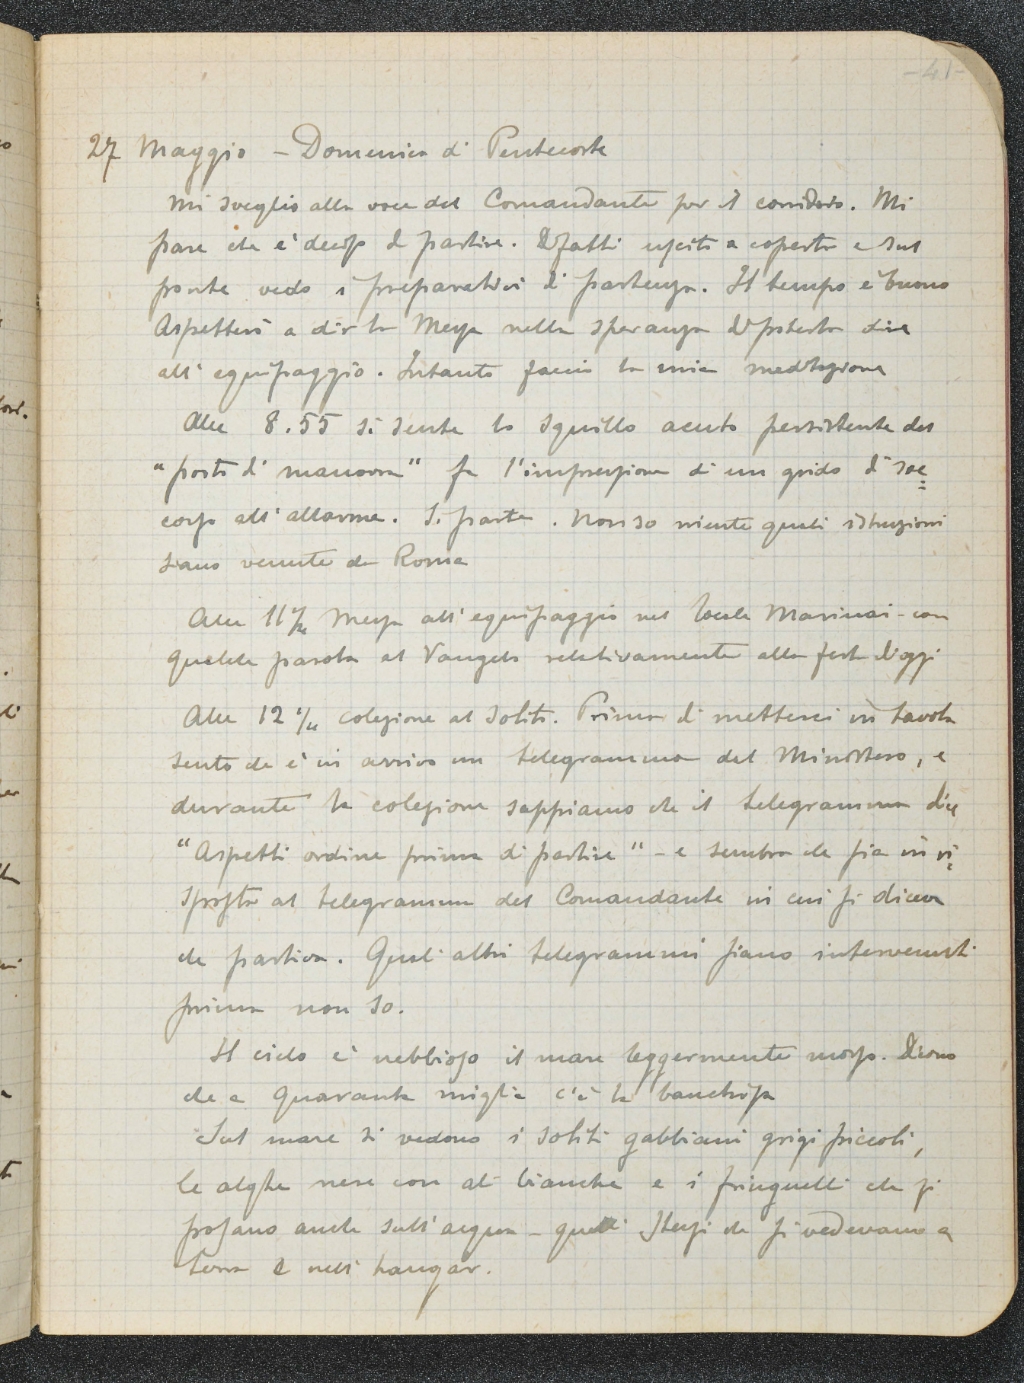 -41-
27 Maggio - Domenica di Pentecoste
Mi sveglio alla voce del Comandante per il corridoio. Mi
pare che è deciso di partire. Difatti uscito a coperta e sul
ponte vedo i preparativi di partenza. Il tempo è buono
Aspetterò a dir la Messa nella speranza di poterla dire
all'equipaggio. Intanto faccio la mia meditazione
Alle 8.55 si sente lo squillo acuto persistente del
"posto di manovra" fa l'impressione di un grido di soc=
corso all'allarme. Si parte. Non so niente quali istruzioni
siano venute da Roma
Alle 11 1/4 Messa all'equipaggio nel locale Marinai - con
qualche parola al Vangelo relativamente alla festa d'oggi
Alle 12 1/4 colezione al solito. Prima di metterci in tavola
sento che è in arrivo un telegramma del Ministero, e
durante la colezione sappiamo che il telegramma dice
"Aspetti ordine prima di partire" - e sembra che sia in ri=
sposta al telegramma del Comandante in cui si diceva
che partiva. Quali altri telegrammi siano intervenuti
prima non so.
Il cielo è nebbioso il mare leggermente mosso. Dicono
che a quaranta miglia c'è la banchisa
Sul mare si vedono i soliti gabbiani grigi piccoli,
le alghe nere con ali bianche e i fringuelli che si
posano anche sull'acqua - quelli stessi che si vedevano a
terra e nell'hangar.